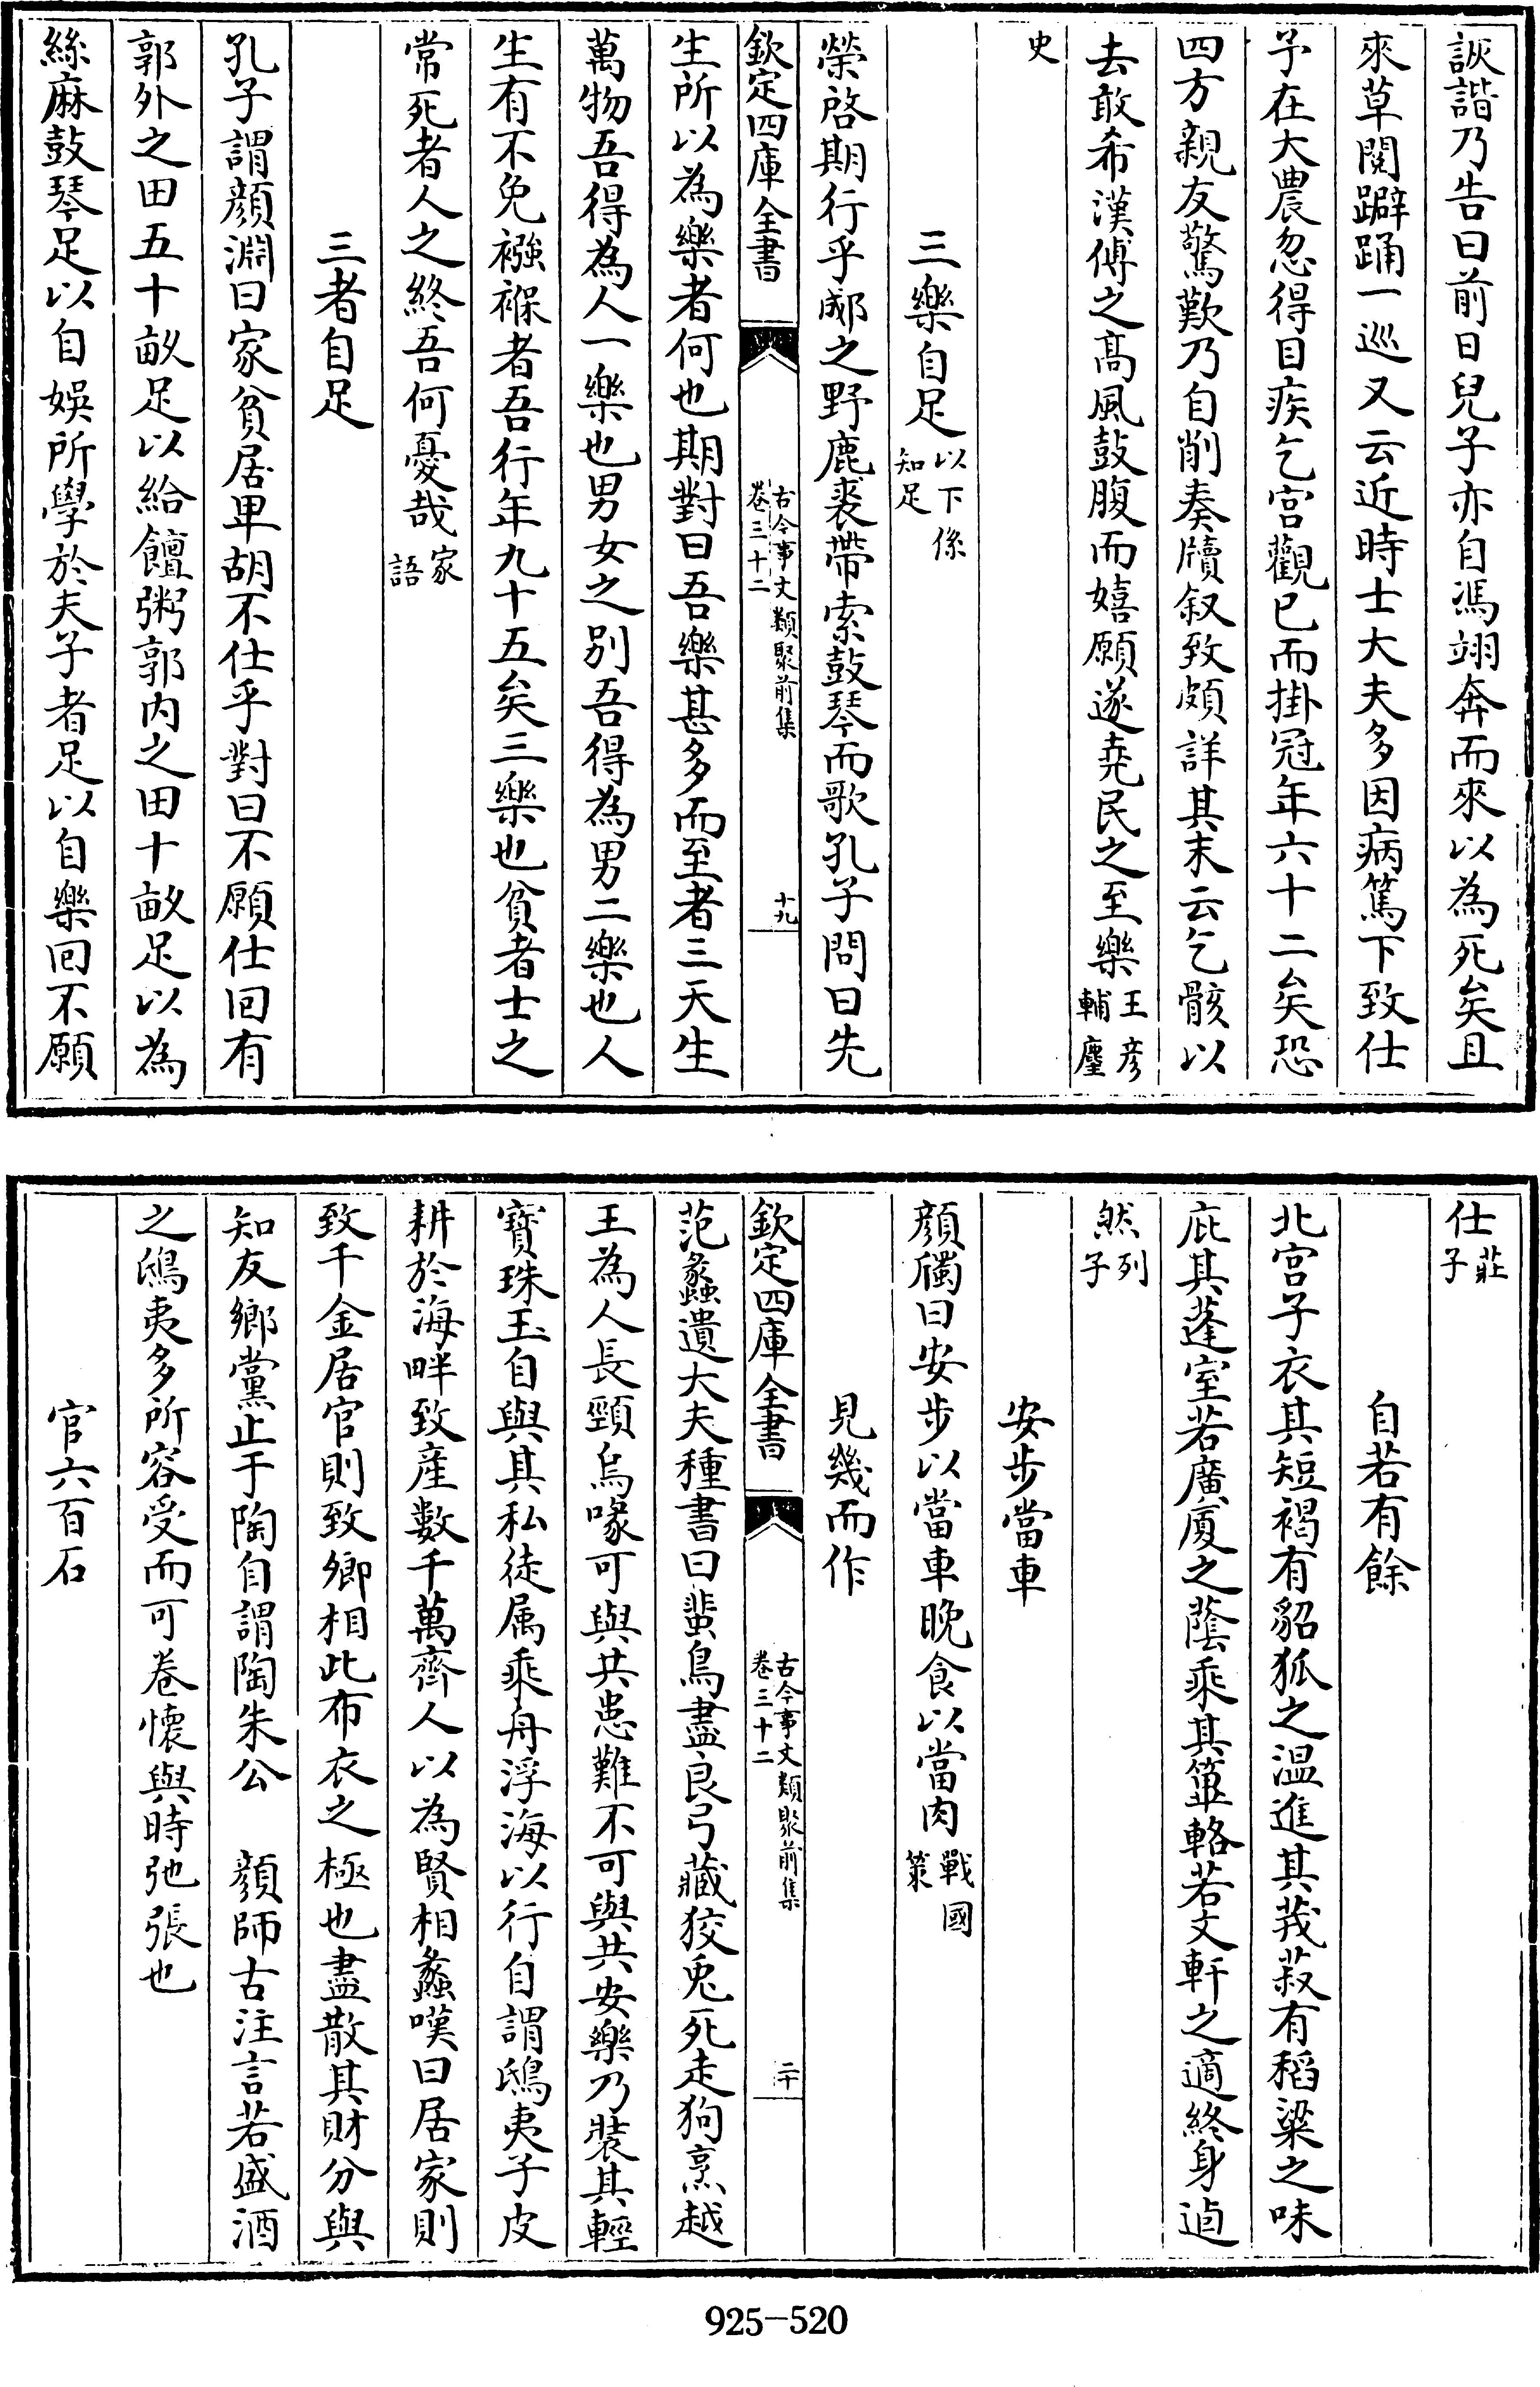 詼諧乃告曰前日兒子亦自馮翊奔而來以為死矣且
來草閱躃踊一巡又云近時士大夫多因病篤下致仕
予在大農忽得目疾乞宫觀已而掛冠年六十二矣恐
四方親友驚歎乃自削奏牘叙致頗詳其末云乞骸以
去敢希漢傅之髙風鼓腹而嬉願遂堯民之至樂王彦輔麈
史
三樂自足以下係知足
榮啓期行乎郕之野鹿裘帶索鼓琴而歌孔子問曰先
欽定四庫全書
古今事文類聚前集
卷三十二
十九
生所以為樂者何也期對曰吾樂甚多而至者三天生
萬物吾得為人一樂也男女之别吾得為男二樂也人
生有不免襁褓者吾行年九十五矣三樂也貧者士之
常死者人之終吾何憂哉家語
三者自足
孔子謂顔淵曰家貧居卑胡不仕乎對曰不願仕回有
郭外之田五十畝足以給饘粥郭内之田十畝足以為
絲麻鼓琴足以自娯所學於夫子者足以自樂回不願
仕莊子
自若有餘
北宫子衣其短褐有貂狐之温進其茙菽有稻粱之味
庇其蓬室若廣厦之蔭乘其篳輅若文軒之適終身逌
然列子
安步當車
顔斶曰安步以當車晚食以當肉戰國策
見幾而作
欽定四庫全書
古今事文類聚前集
卷三十二
二十
范蠡遺大夫種書曰蜚鳥盡良弓藏狡兎死走狗烹越
王為人長頸烏喙可與共患難不可與共安樂乃裝其輕
寳珠玉自與其私徒属乘舟浮海以行自謂鴟夷子皮
耕於海畔致産數千萬齊人以為賢相蠡嘆曰居家則
致千金居官則致卿相此布衣之極也盡散其財分與
知友鄉黨止于陶自謂陶朱公　顔師古注言若盛酒
之鴟夷多所容受而可卷懷與時弛張也
官六百石
925-520